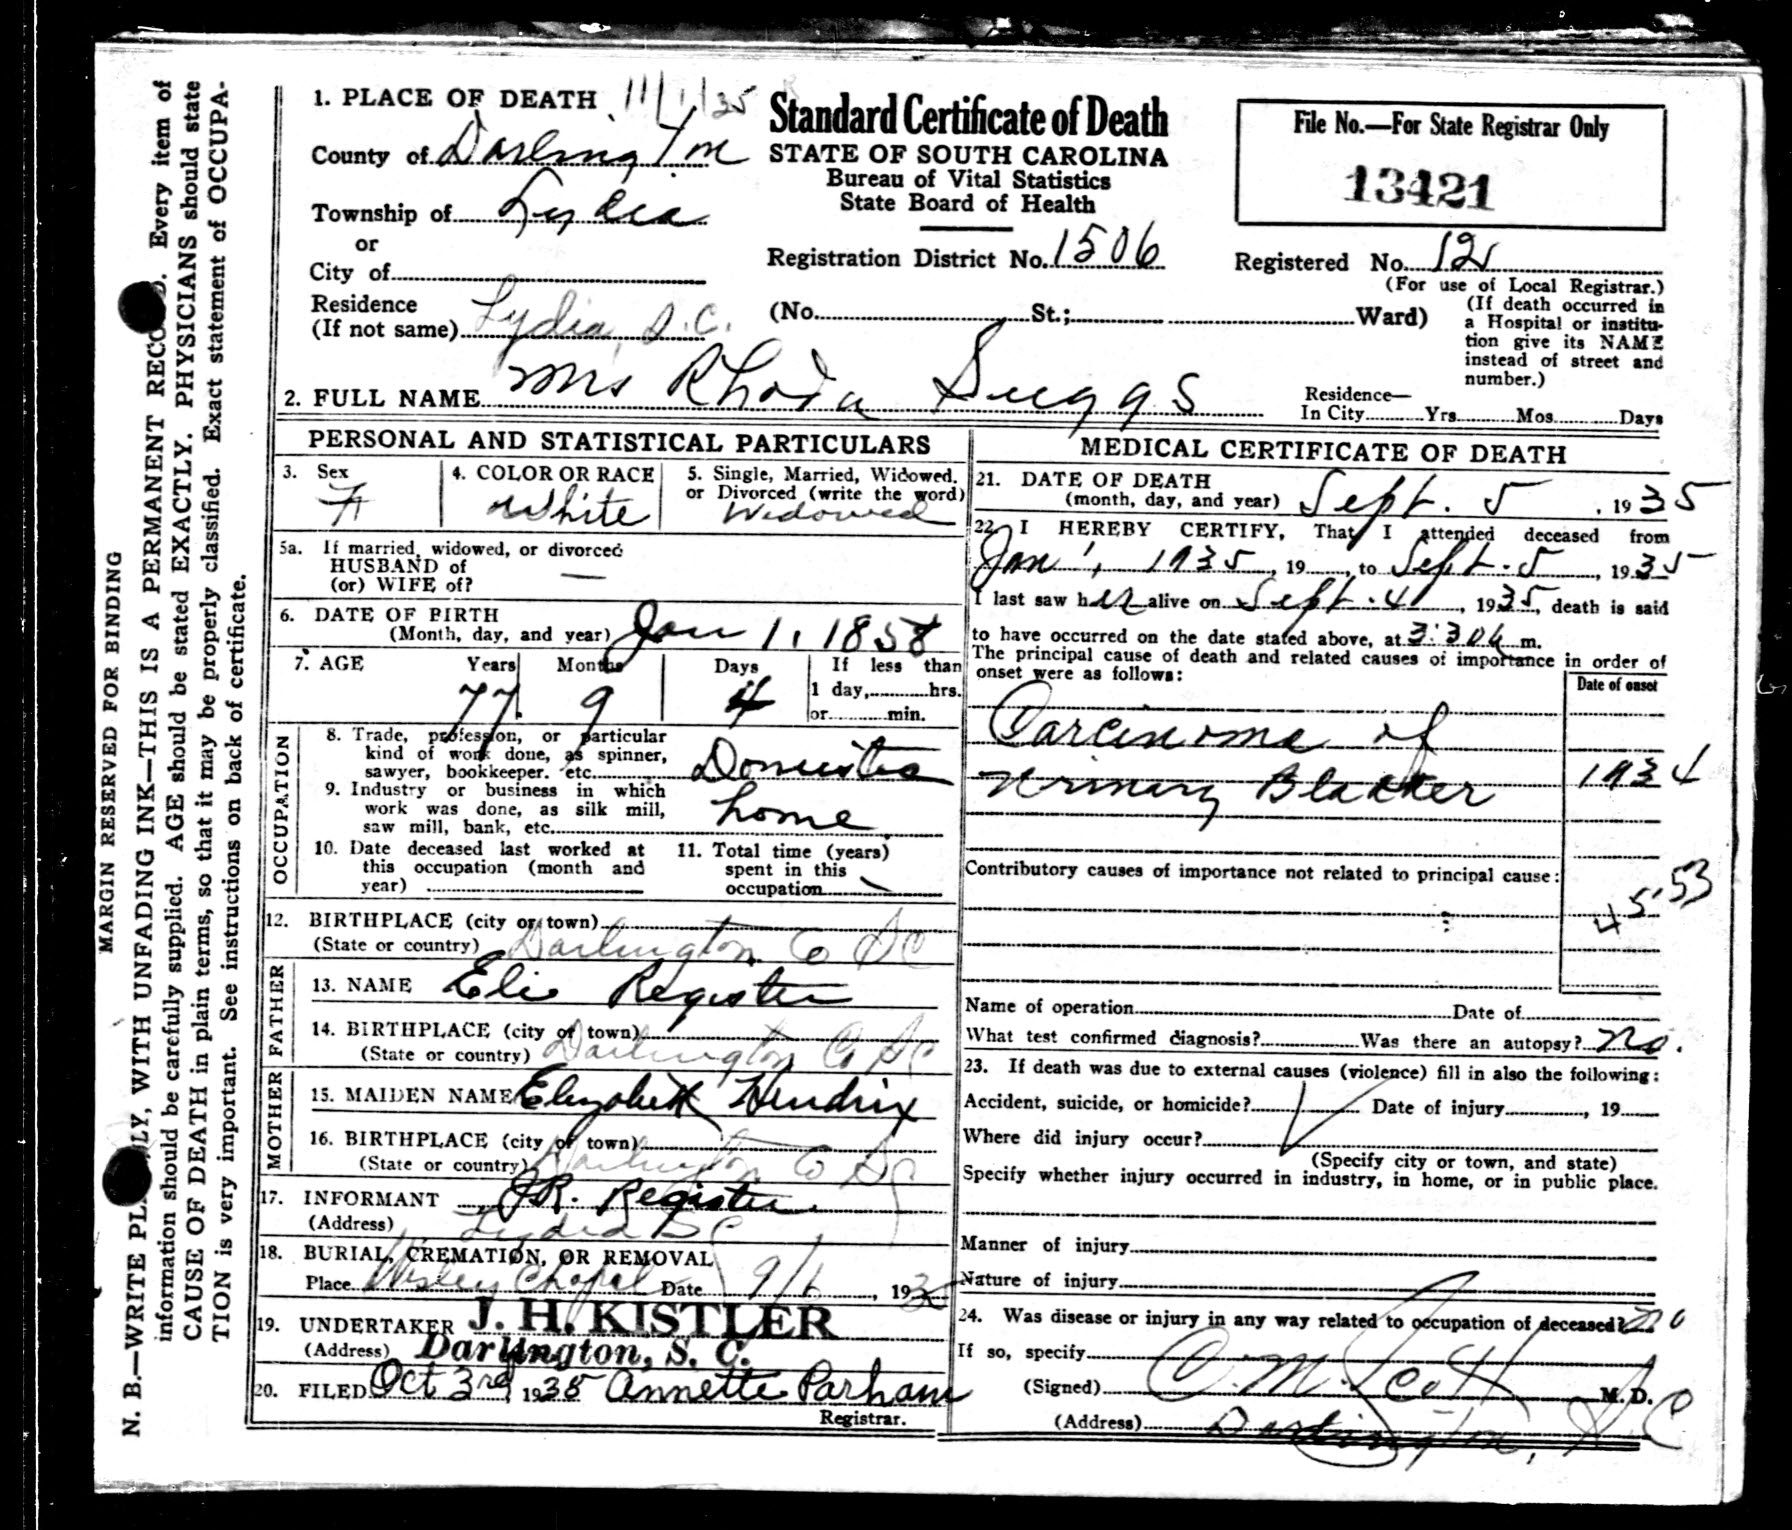 MARGIN RESERVED FOR BINDING
N. B.—WRITE PLAINLY, WITH UNFADING INK—THIS IS A PERMANENT RECORD. Every item of
information should be carefully supplied. AGE should be stated EXACTLY. PHYSICIANS should state
CAUSE OF DEATH in plain terms, so that it may be properly classified. Exact statement of OCCUPA-
TION is very important. See instructions on back of certificate.
1. PLACE OF DEATH 11/1/35
County of Darlington
Township of Lydia
or
City of
Residence
(If not same) Lydia, S.C.
Standard Certificate of Death
STATE OF SOUTH CAROLINA
Bureau of Vital Statistics
State Board of Health
Registration District No. 1506
(No. St.; Ward)
File No.—For State Registrar Only
13421
Registered No. 12
(For use of Local Registrar.)
(If death occurred in
a Hospital or institu-
tion give its NAME
instead of street and
number.)
2. FULL NAME Mrs Rhoda Suggs
Residence—
In City Yrs. Mos. Days
PERSONAL AND STATISTICAL PARTICULARS
3. Sex F
4. COLOR OR RACE White
5. Single, Married, Widowed,
or Divorced (write the word)
Widowed
5a. If married, widowed, or divorced
HUSBAND of
(or) WIFE of? —
6. DATE OF BIRTH
(Month, day, and year) Jan 1, 1858
7. AGE Years Months Days If less than
77 9 4 1 day, hrs.
or min.
OCCUPATION
8. Trade, profession, or particular
kind of work done, as spinner,
sawyer, bookkeeper. etc. Domestic
9. Industry or business in which
work was done, as silk mill,
saw mill, bank, etc. home
10. Date deceased last worked at
this occupation (month and
year)
11. Total time (years)
spent in this
occupation
12. BIRTHPLACE (city or town)
(State or country) Darlington Co SC
FATHER
13. NAME Elie Register
14. BIRTHPLACE (city or town)
(State or country) Darlington Co SC
MOTHER
15. MAIDEN NAME Elizabeth Hendrix
16. BIRTHPLACE (city or town)
(State or country) Darlington Co SC
17. INFORMANT J.R. Register
(Address) Lydia SC
18. BURIAL, CREMATION, OR REMOVAL
Place Wesley Chapel Date 9/6, 1935
19. UNDERTAKER J. H. KISTLER
(Address) Darlington, S. C.
20. FILED Oct 3rd, 1935 Annette Parham
Registrar.
MEDICAL CERTIFICATE OF DEATH
21. DATE OF DEATH
(month, day, and year) Sept. 5, 1935
22. I HEREBY CERTIFY, That I attended deceased from
Jan 1, 1935, 19, to Sept. 5, 1935
I last saw her alive on Sept. 4, 1935, death is said
to have occurred on the date stated above, at 3:30 a m.
The principal cause of death and related causes of importance in order of
onset were as follows:
Date of onset
Carcinoma of
Urinary Bladder 1934
Contributory causes of importance not related to principal cause:
4 5 53
Name of operation Date of
What test confirmed diagnosis? Was there an autopsy? No.
23. If death was due to external causes (violence) fill in also the following:
Accident, suicide, or homicide? Date of injury, 19
Where did injury occur?
(Specify city or town, and state)
Specify whether injury occurred in industry, in home, or in public place.
Manner of injury
Nature of injury
24. Was disease or injury in any way related to occupation of deceased? no
If so, specify
(Signed) O.M. Scott M.D.
(Address) Darlington, S.C